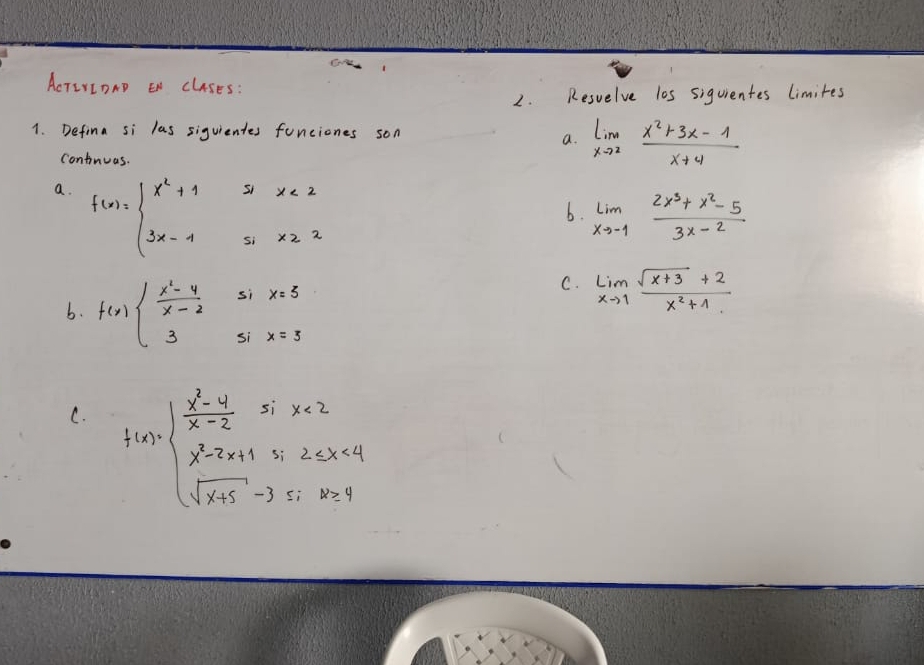 ACTIVIDAD EN CLASES:
1. Defina si las siguientes funciones son
continuas.
a. f(x)= { x² + 1 si x < 2
3x - 1 si x ≥ 2
b. f(x) { (x² - 4)/(x - 2) si x = 3
3 si x = 3
c. f(x)= { (x² - 4)/(x - 2) si x < 2
x² - 2x + 1 si 2 ≤ x < 4
√(x+5) - 3 si x ≥ 4
2. Resuelve los siguientes limites
a. Lim x→2 (x² + 3x - 1)/(x + 4)
b. Lim x→-1 (2x³ + x² - 5)/(3x - 2)
c. Lim x→1 (√(x+3) + 2)/(x² + 1).